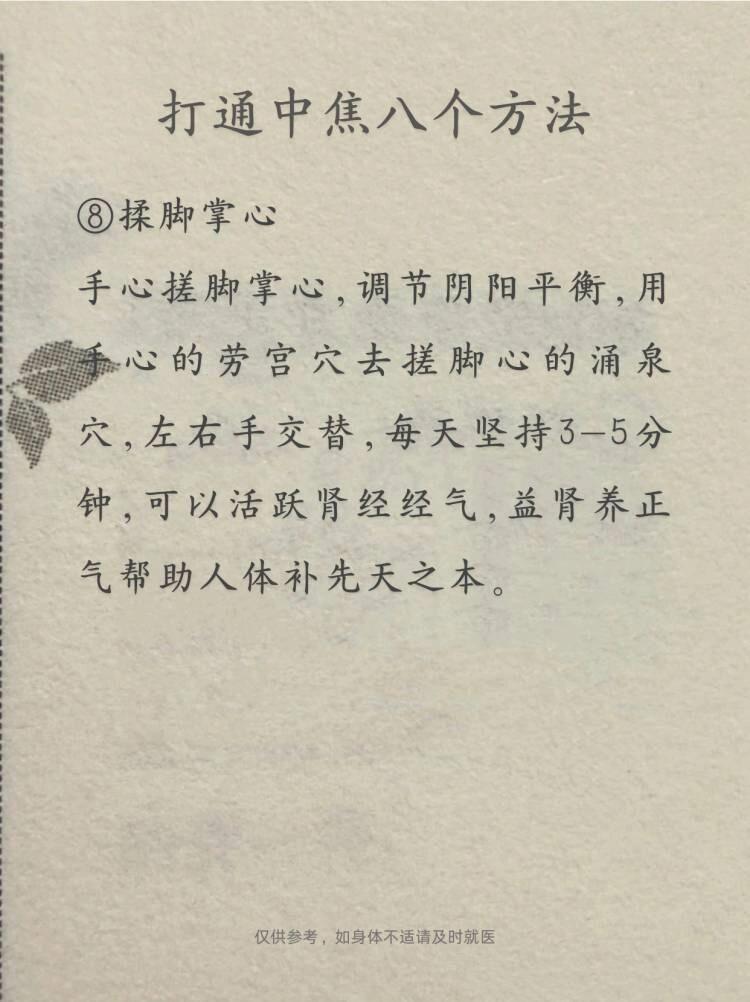 打通中焦八个方法
⑧揉脚掌心
手心搓脚掌心,调节阴阳平衡,用
手心的劳宫穴去搓脚心的涌泉
穴,左右手交替,每天坚持3-5分
钟,可以活跃肾经经气,益肾养正
气帮助人体补先天之本。
仅供参考，如身体不适请及时就医